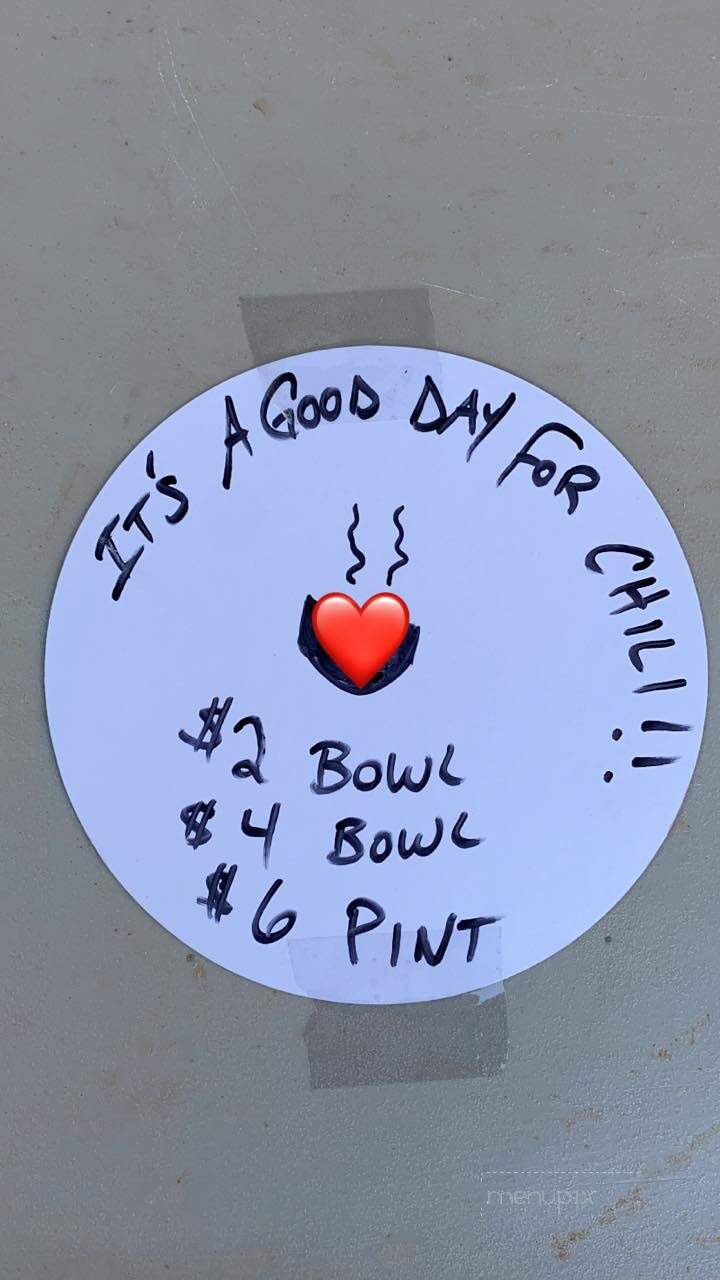 IT'S A GOOD DAY FOR CHILI!!
$2 BOWL
$4 BOWL
$6 PINT
menupix